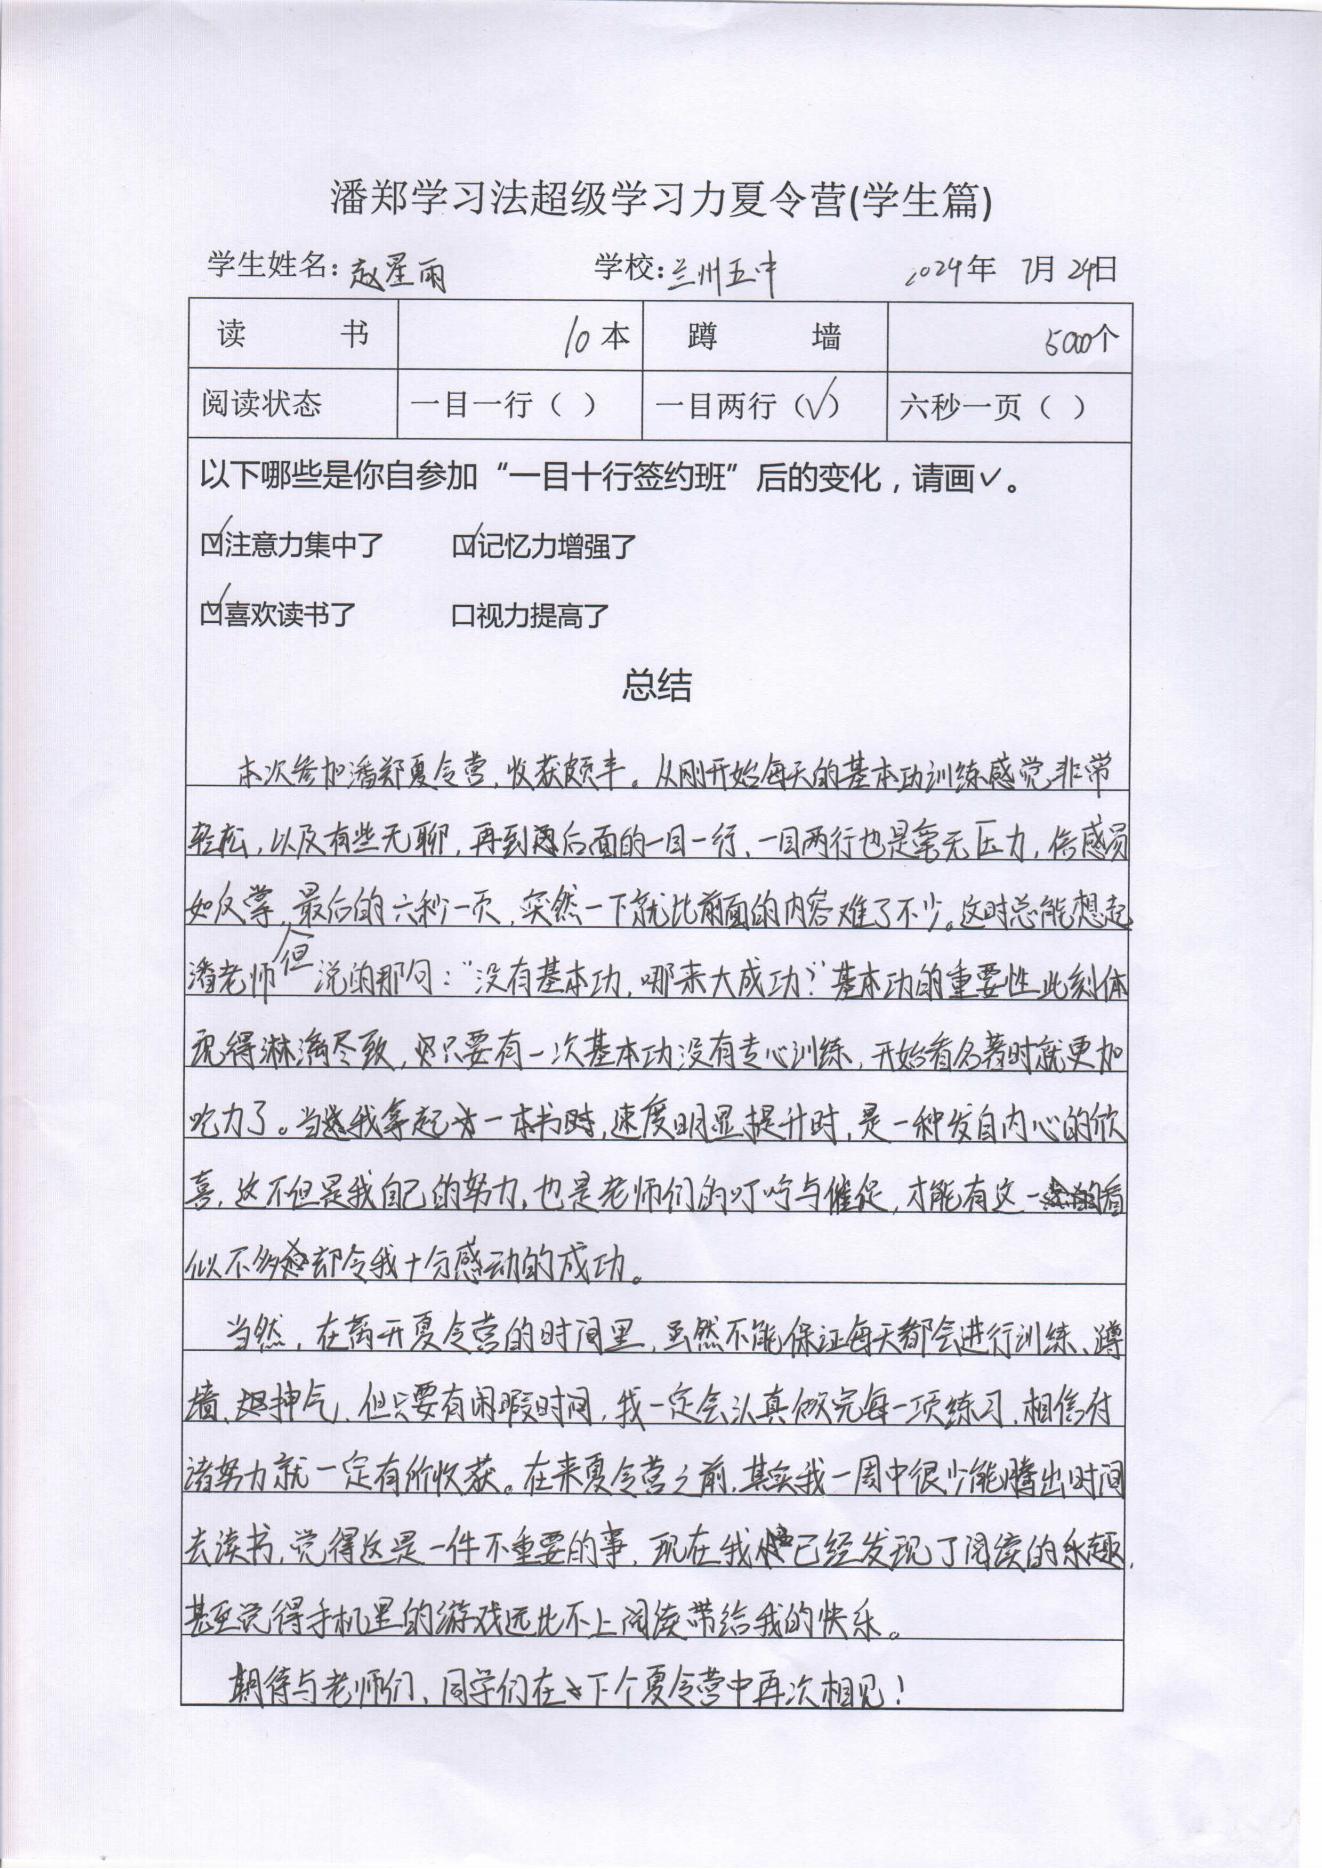 潘郑学习法超级学习力夏令营(学生篇)
学生姓名：赵星雨 学校：兰州五中 2024年 7月 24日
读 书 10本 蹲 墙 5000个
阅读状态 一目一行（ ） 一目两行（✓） 六秒一页（ ）
以下哪些是你自参加“一目十行签约班”后的变化，请画✓。
☑注意力集中了 ☑记忆力增强了
☑喜欢读书了 口视力提高了
总结
本次参加潘郑夏令营，收获颇丰。从刚开始每天的基本功训练感觉非常
轻松，以及有些无聊，再到后面的一目一行、一目两行也是毫无压力，倍感易
如反掌，但最后的六秒一页，突然一下就比前面的内容难了不少。这时总能想起
潘老师说的那句：“没有基本功，哪来大成功？”基本功的重要性此刻体
现得淋漓尽致，只要有一次基本功没有专心训练，开始看名著时就更加
吃力了。当我拿起一本书时，速度明显提升时，是一种发自内心的欣
喜，这不但是我自己的努力，也是老师们的叮咛与催促，才能有这一看
似不多却令我十分感动的成功。
当然，在离开夏令营的时间里，虽然不能保证每天都会进行训练、蹲
墙、抻气，但只要有闲暇时间，我一定会认真做完每一项练习，相信付
诸努力就一定有所收获。在来夏令营之前，其实我一周中很少能腾出时间
去读书，觉得这是一件不重要的事，现在我已经发现了阅读的乐趣，
甚至觉得手机里的游戏远比不上阅读带给我的快乐。
期待与老师们、同学们在下个夏令营中再次相见！